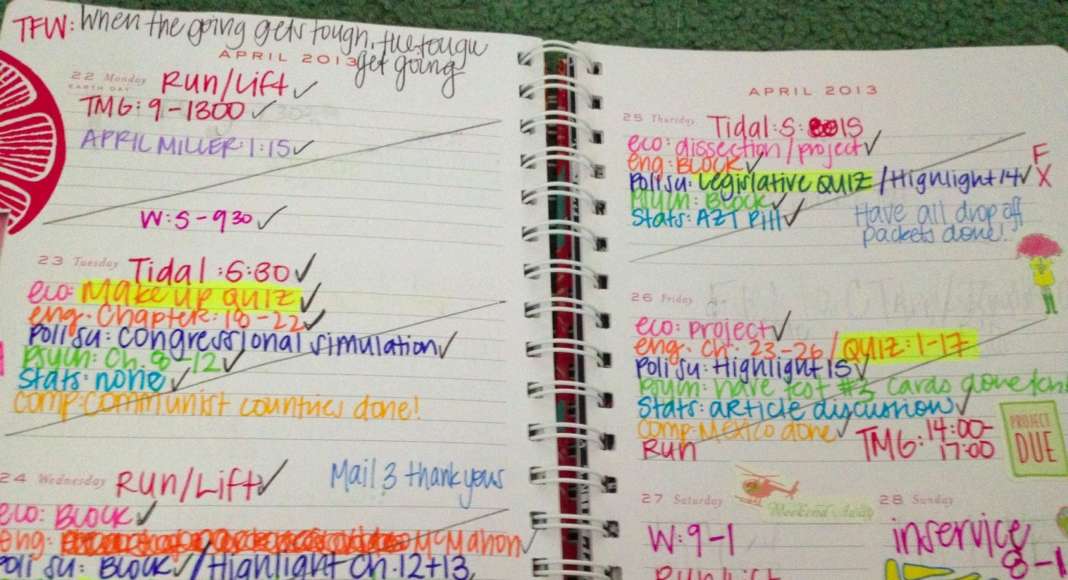 TFW: When the going gets tough, the tough
get going
APRIL 2013
22 Monday Run/Lift ✓
EARTH DAY
TMG: 9-1300 ✓
APRIL MILLER: 1:15 ✓
W: 5-930 ✓
23 Tuesday Tidal: 5:30 ✓
eco: Make up QUIZ ✓
eng: Chapter: 18-22 ✓
Poli su: Congressional simulation ✓
Psych: Ch. 8-12 ✓
Stats: none ✓
comp: communist countries done!
24 Wednesday Run/Lift ✓ Mail 3 thank yous
eco: BLOCK ✓
eng: McMahon ✓
Poli su: BLOCK ✓ / Highlight Ch. 12+13
APRIL 2013
25 Thursday Tidal: 5:15
eco: dissection/project ✓
eng: BLOCK ✓
Poli su: Legislative QUIZ / Highlight 14 ✓
F
X
Psych: BLOCK ✓
Stats: AZT Pill ✓
Have all drop off
packets done!
26 Friday
eco: project ✓
eng: Ch. 23-26 / QUIZ: 1-17
Poli su: Highlight 15 ✓
Psych: have test #3 cards done
Stats: article discussion ✓
comp: Mexico done ✓
Run TMG: 14:00-
17:00
PROJECT
DUE
27 Saturday
W: 9-1
Run/Lift
28 Sunday
inservice
8-1